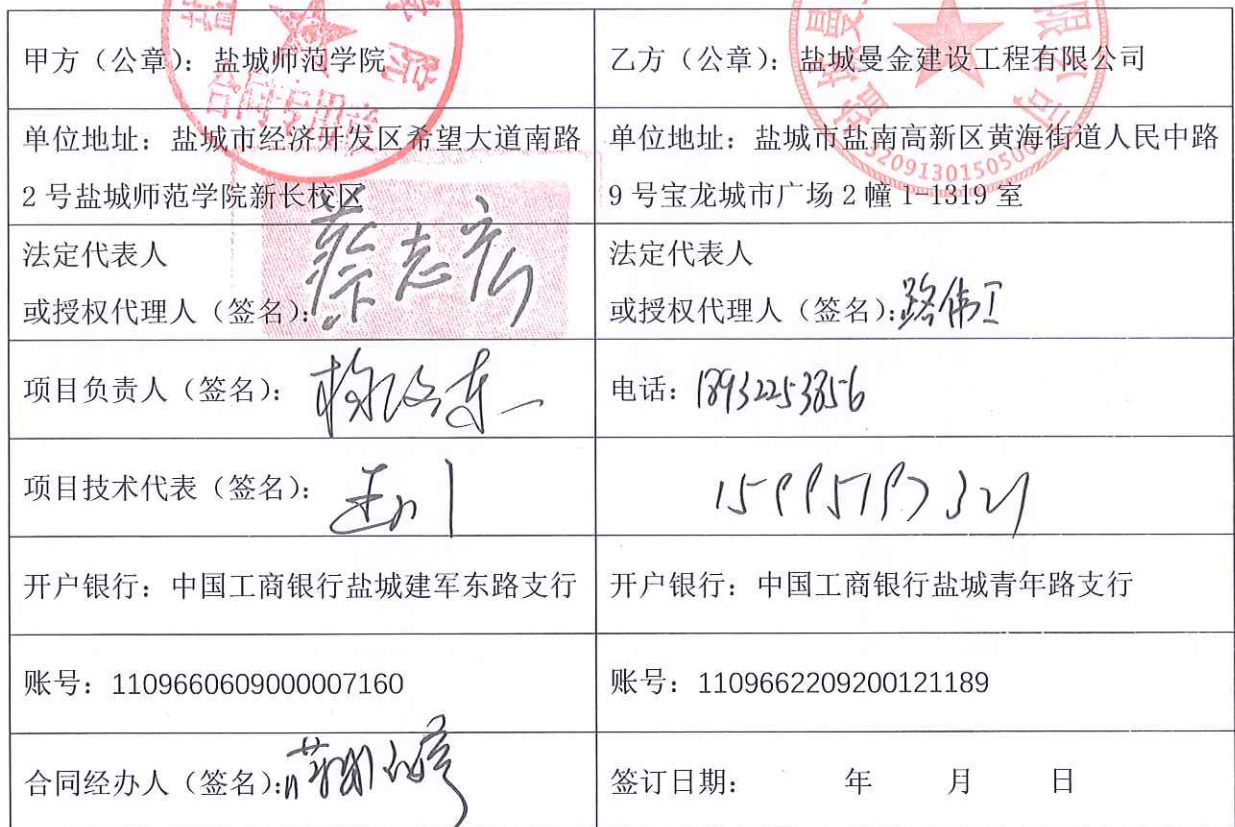 甲方（公章）：盐城师范学院
乙方（公章）：盐城曼金建设工程有限公司
合同专用章
3209130150500
单位地址：盐城市经济开发区希望大道南路
2号盐城师范学院新长校区
单位地址：盐城市盐南高新区黄海街道人民中路
9号宝龙城市广场2幢1-1319室
法定代表人
或授权代理人（签名）：蔡志宏
法定代表人
或授权代理人（签名）：路伟
项目负责人（签名）：
电话：18932253856
项目技术代表（签名）：
开户银行：中国工商银行盐城建军东路支行
开户银行：中国工商银行盐城青年路支行
账号：1109660609000007160
账号：1109662209200121189
合同经办人（签名）：
签订日期： 年 月 日